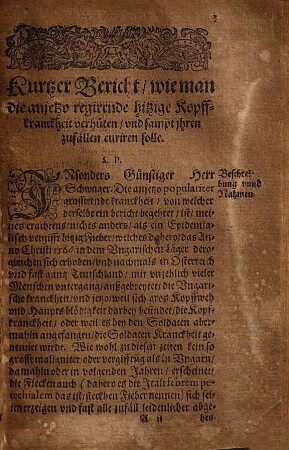 3
Kurtzer Bericht / wie man
die anjetzo regirende hitzige Kopff-
kranckheit verhüten / vnd sampt jhren
zufällen curiren solle.
S. P.
INsonders Günstiger Herr
Schwager. Die anjetzo populariter
grassirende kranckheit / von welcher
derselbe ein bericht begehret / ist / mei-
nes erachtens / nichts anders / als ein Epidemia-
lisch vergifft hitzig Fieber / welches daher / das An-
no Christi 1566. in dem Vngarischen Läger dero-
gleichen sich erhoben / vnd nachmals in Osterreich
vnd fast gantz Teutschland / mit vnzehlich vieler
Menschen vntergang / außgebreytet / die Vngari-
sche kranckheit / vnd jetzo / weil sich gros Kopffweh
vnd Haupts blödigkeit darbey befindet / die Kopf-
kranckheit / oder weil es bey den Soldaten aber-
mahln angefangen / die Soldaten Kranckheit ge-
nennet wirdt. Wie wohl zu dieser zeiten kein so
grosse malignitet oder vergifftug als in Vngarn /
da mahln oder in volgenden Jahren / erscheinet /
die Flecken auch ( dahero es die Itali febrem pe-
techialem das ist / flecken Fieber nennen ) sich sel-
ten erzeigen vnd fast alle zufäll leidenlicher abge-
Beschrei-
bung vnnd
Nahmen.
A ij
hen.